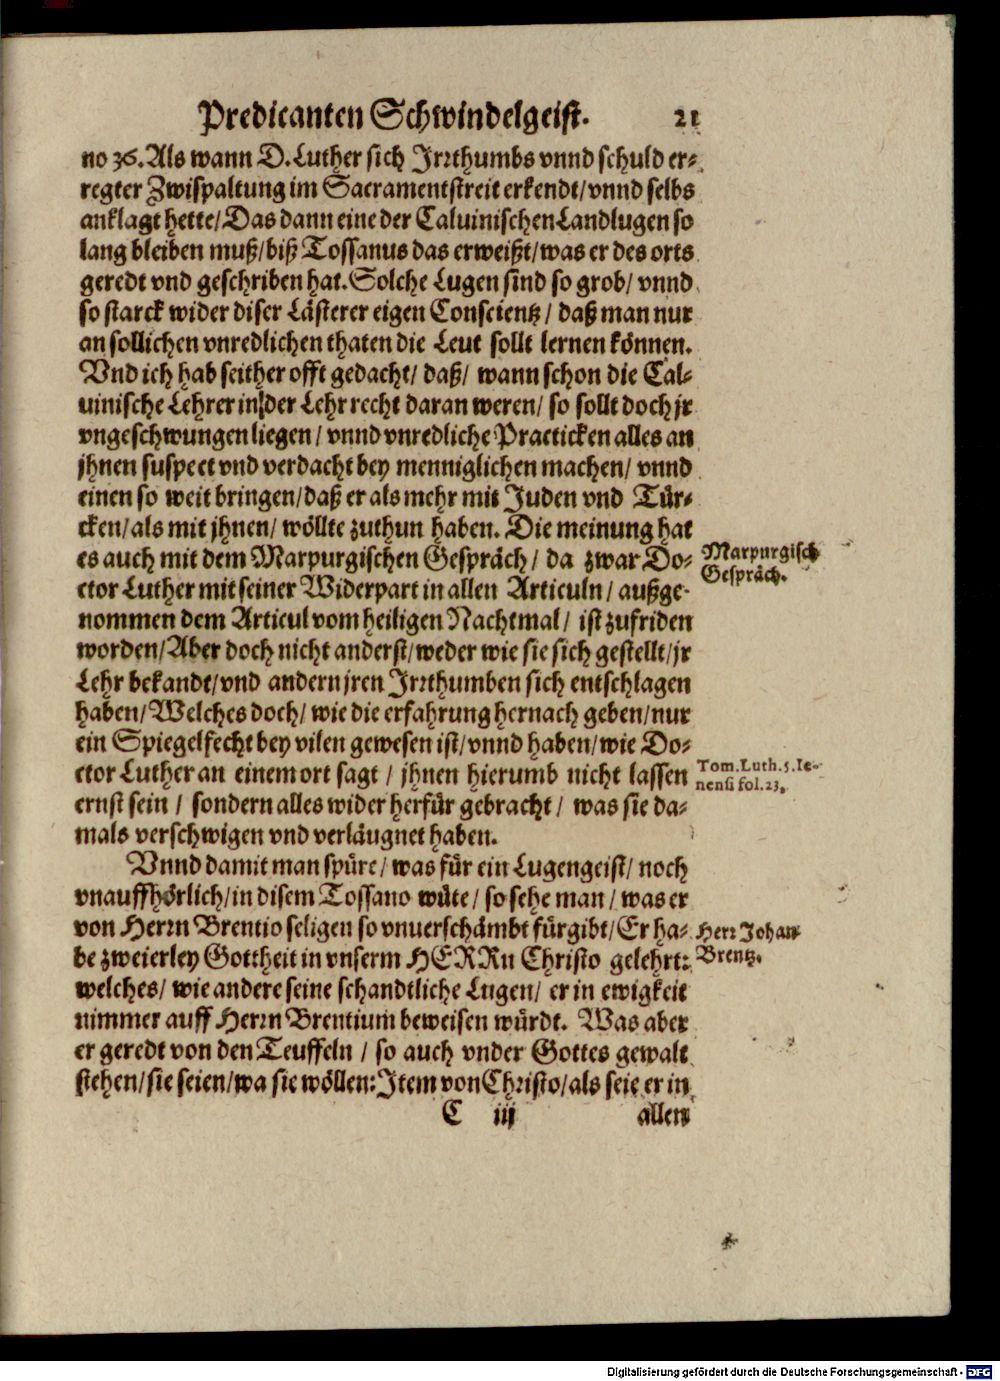 Predicanten Schwindelgeist. 21
no 36. Als wann D. Luther sich Irrthumbs vnnd schuld er-
regter Zwispaltung im Sacramentstreit erkendt/ vnnd selbs
anklagt hette/ Das dann eine der Caluinischen Landlugen so
lang bleiben muß/ biß Tossanus das erweißt/ was er des orts
geredt vnd geschriben hat. Solche Lugen sind so grob/ vnnd
so starck wider diser Lästerer eigen Conscientz/ daß man nur
an sollichen vnredlichen thaten die Leut sollt lernen können.
Vnd ich hab seither offt gedacht/ daß/ wann schon die Cal-
uinische Lehrer in der Lehr recht daran weren/ so sollt doch jr
vngeschwungen liegen/ vnnd vnredliche Practicken alles an
jhnen suspect vnd verdacht bey menniglichen machen/ vnnd
einen so weit bringen/ daß er als mehr mit Juden vnd Tür-
cken/ als mit jhnen/ wöllte zuthun haben. Die meinung hat
es auch mit dem Marpurgischen Gespräch/ da zwar Do-
ctor Luther mit seiner Widerpart in allen Articuln/ außge-
nommen dem Articul vom heiligen Nachtmal/ ist zufriden
worden/ Aber doch nicht anderst/ weder wie sie sich gestellt/ jr
Lehr bekandt/ vnd andern jren Irrthumben sich entschlagen
haben/ Welches doch/ wie die erfahrung hernach geben/ nur
ein Spiegelfecht bey vilen gewesen ist/ vnnd haben/ wie Do-
ctor Luther an einem ort sagt/ jhnen hierumb nicht lassen
ernst sein/ sondern alles wider herfür gebracht/ was sie da-
mals verschwigen vnd verläugnet haben.
Vnnd damit man spüre/ was für ein Lugengeist/ noch
vnauffhörlich/ in disem Tossano wüte/ so sehe man/ was er
von Herrn Brentio seligen so vnuerschämbt fürgibt/ Er ha-
be zweierley Gottheit in vnserm HERRn Christo gelehrt:
welches/ wie andere seine schandtliche Lugen/ er in ewigkeit
nimmer auff Herrn Brentium beweisen würdt. Was aber
er geredt von den Teuffeln/ so auch vnder Gottes gewalt
stehen/ sie seien/ wa sie wöllen: Item von Christo/ als seie er in
C iij allen
Marpurgisch
Gespräch.
Tom. Luth. 5. Ie-
nensi fol. 23.
Herr Johan
Brentz.
Digitalisierung gefördert durch die Deutsche Forschungsgemeinschaft - DFG